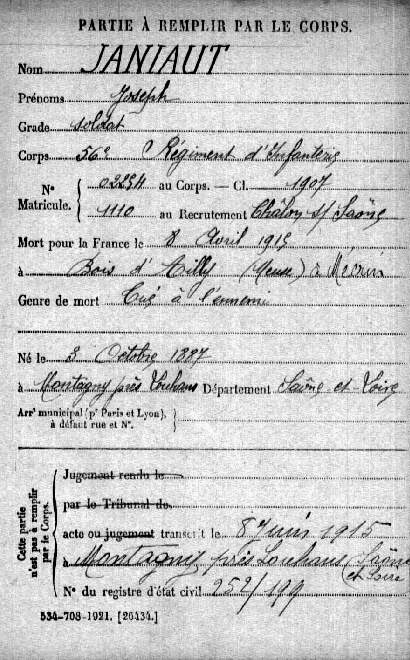 PARTIE À REMPLIR PAR LE CORPS.
Nom JANIAUT
Prénoms Joseph
Grade soldat
Corps 56e Régiment d'Infanterie
N° Matricule. { 02254 au Corps. — Cl. 1907
1110 au Recrutement Châlon s/ Saône
Mort pour la France le 8 Avril 1915
à Bois d'Ailly (Meuse) à Mécrin
Genre de mort Tué à l'ennemi
Né le 3 Octobre 1887
à Montagny près Louhans Département Saône-et-Loire
Arrt municipal (pr Paris et Lyon), }
à défaut rue et N°.
Cette partie n'est pas à remplir par le Corps.
Jugement rendu le
par le Tribunal de
acte ou jugement transcrit le 8 Juin 1915
à Montagny près Louhans (Saône et Loire)
N° du registre d'état civil 252/199
534-708-1921. [26434.]